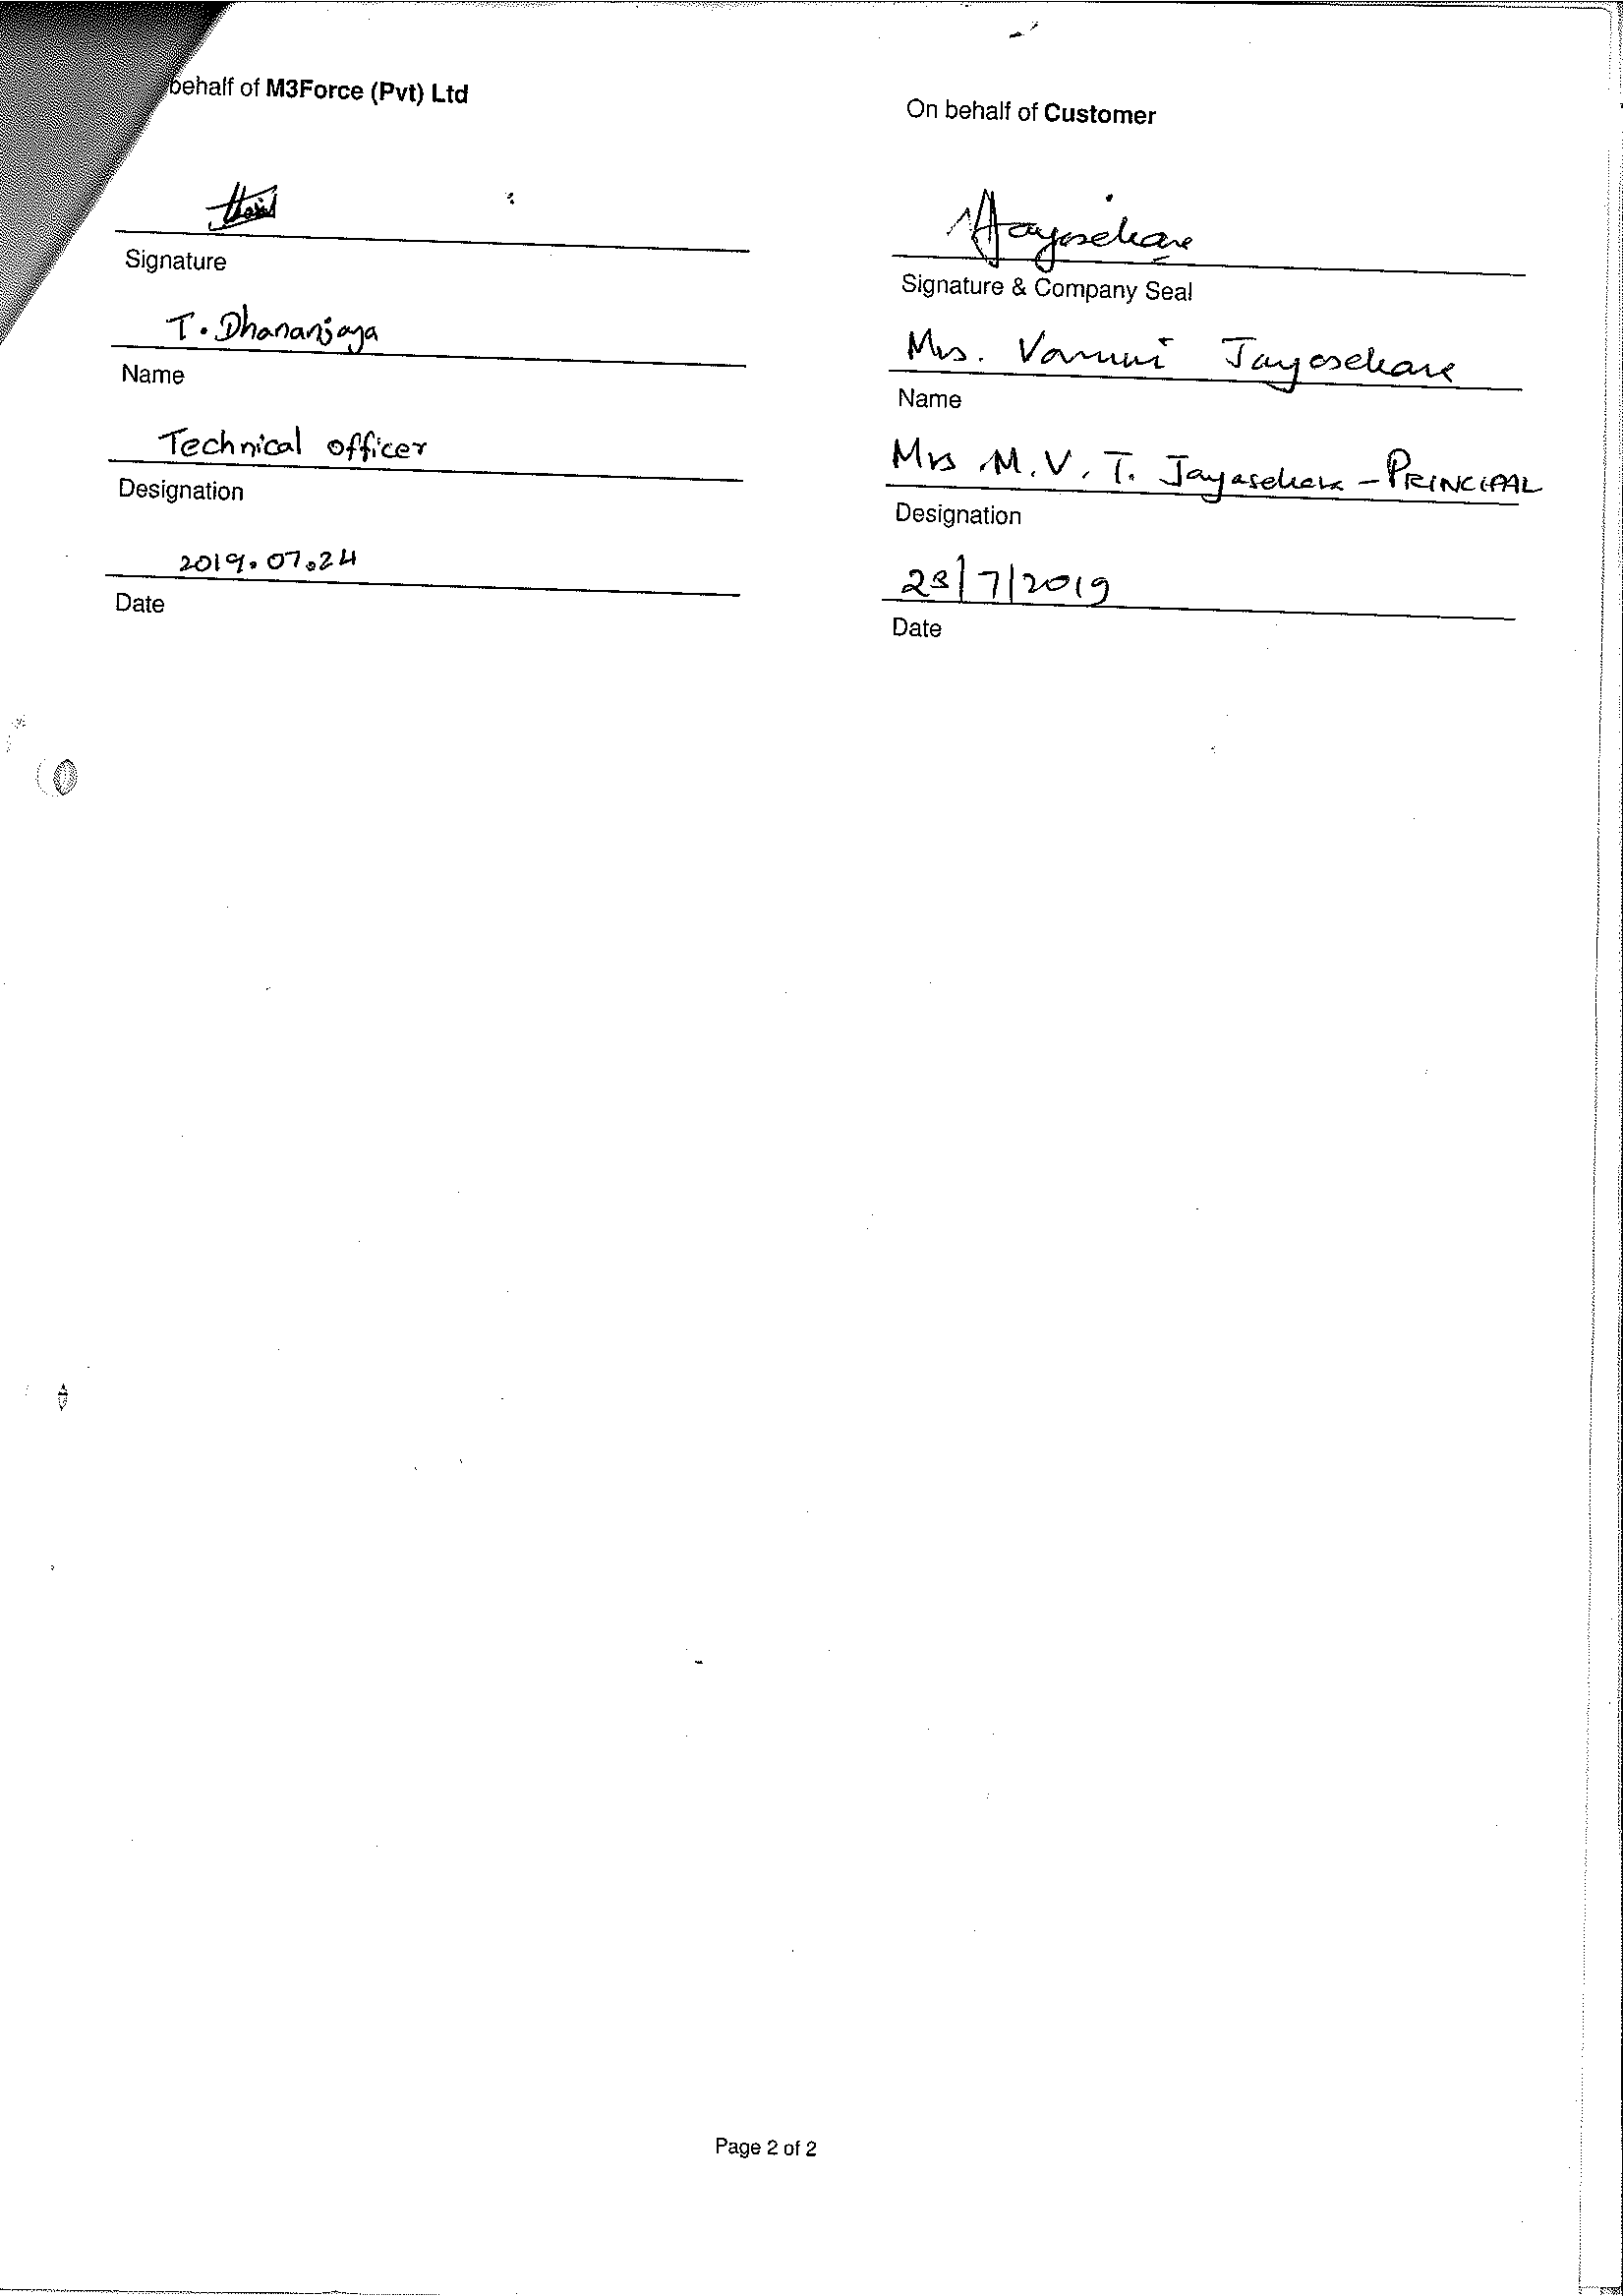 behalf of M3Force (Pvt) Ltd
Signature
T. Dhananjaya
Name
Technical officer
Designation
2019.07.24
Date
On behalf of Customer
Jayasekare
Signature & Company Seal
Mrs. Jayasekare
Name
Mrs M. V. T. Jayasekara - PRINCIPAL
Designation
23/7/2019
Date
Page 2 of 2